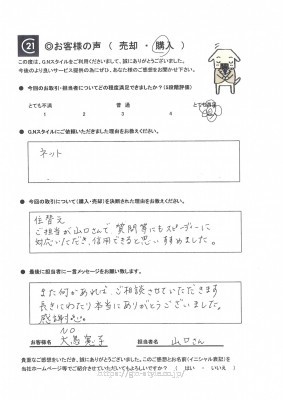 21 ◎お客様の声 ( 売却 ・ 購入 )
この度は、G.Nスタイルをご利用くださいまして、誠にありがとうございました。
今後のより良いサービス提供の為にぜひ、あなた様のご感想をお聞かせ下さい。
● 今回のお取引・担当者についてどの程度満足できましたか？（5段階評価）
とても不満 普通 とても満足
1 2 3 4
● G.Nスタイルにご依頼いただきました理由をお教えください。
ネット
● 今回の取引について（購入・売却）を決断された理由をお教えください。
住替え
ご担当が山口さんで 質問等にもスピーディーに
対応いただき、信用できると思いすすめました。
● 最後に担当者に一言メッセージをお願い致します。
また何かあれば ご相談させていただきます
長きにわたり本当にありがとうございました。
感謝
N.O
お客様名 担当者名 山口さん
貴重なご感想をいただき、誠にありがとうございました。このご感想とお名前（イニシャル表記）を
当社ホームページ等でご紹介させていただいてもよろしいですか？ （ はい ・ いいえ ）